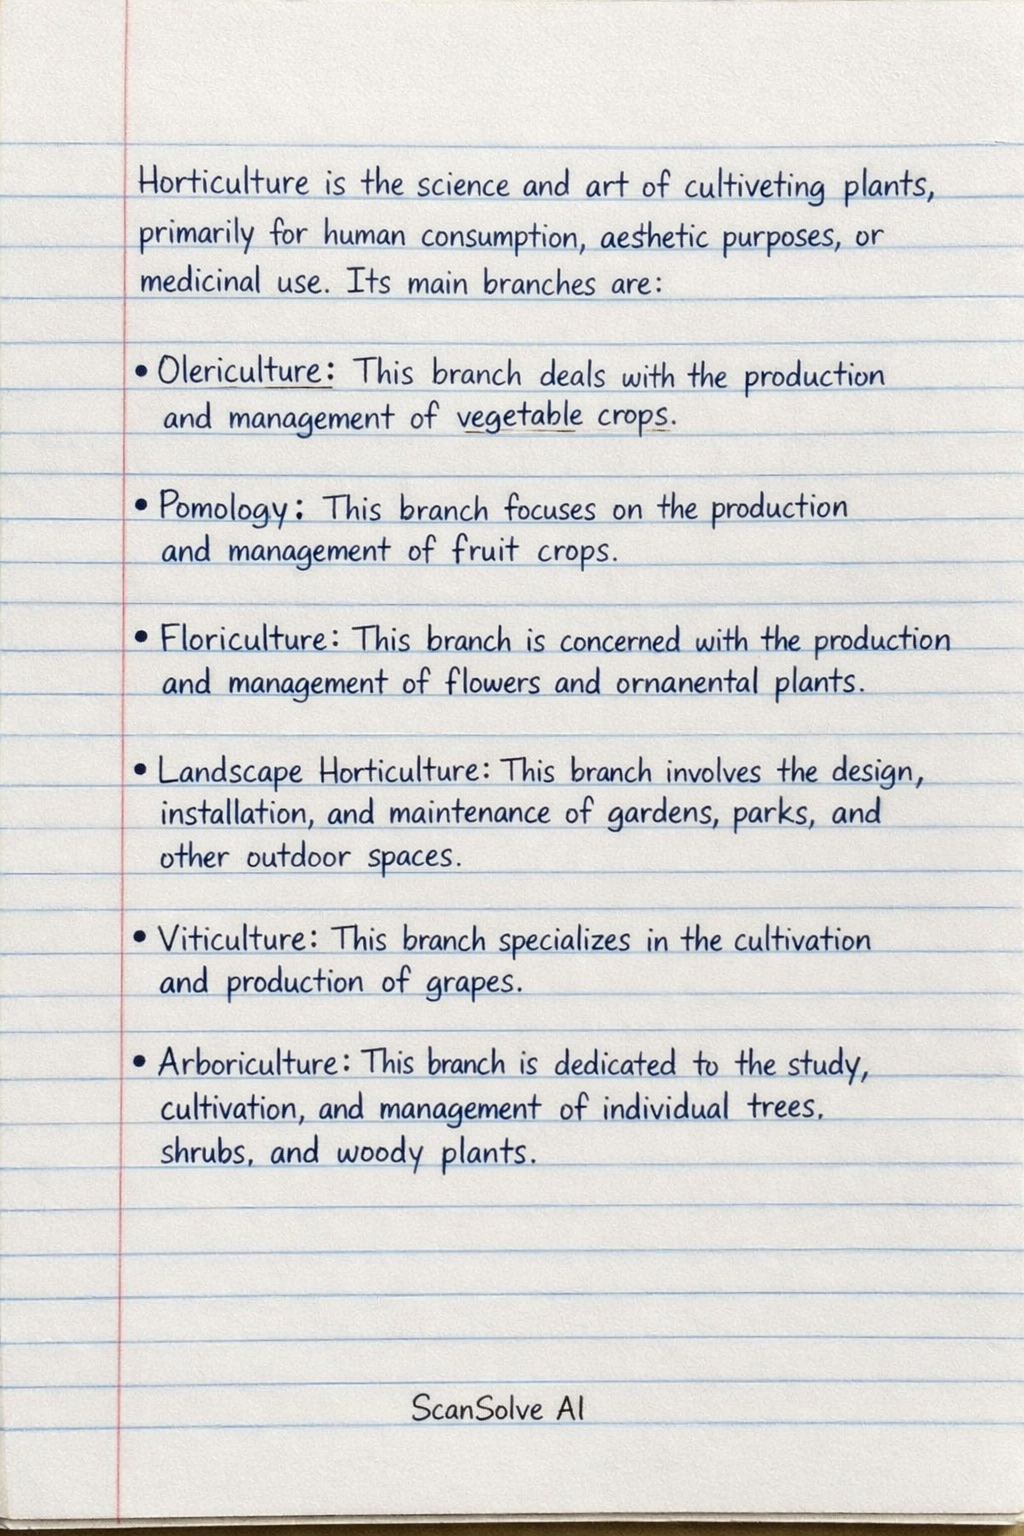 Horticulture is the science and art of cultiveting plants,
primarily for human consumption, aesthetic purposes, or
medicinal use. Its main branches are:
• Olericulture: This branch deals with the production
and management of vegetable crops.
• Pomology: This branch focuses on the production
and management of fruit crops.
• Floriculture: This branch is concerned with the production
and management of flowers and ornanental plants.
• Landscape Horticulture: This branch involves the design,
installation, and maintenance of gardens, parks, and
other outdoor spaces.
• Viticulture: This branch specializes in the cultivation
and production of grapes.
• Arboriculture: This branch is dedicated to the study,
cultivation, and management of individual trees,
shrubs, and woody plants.
ScanSolve AI